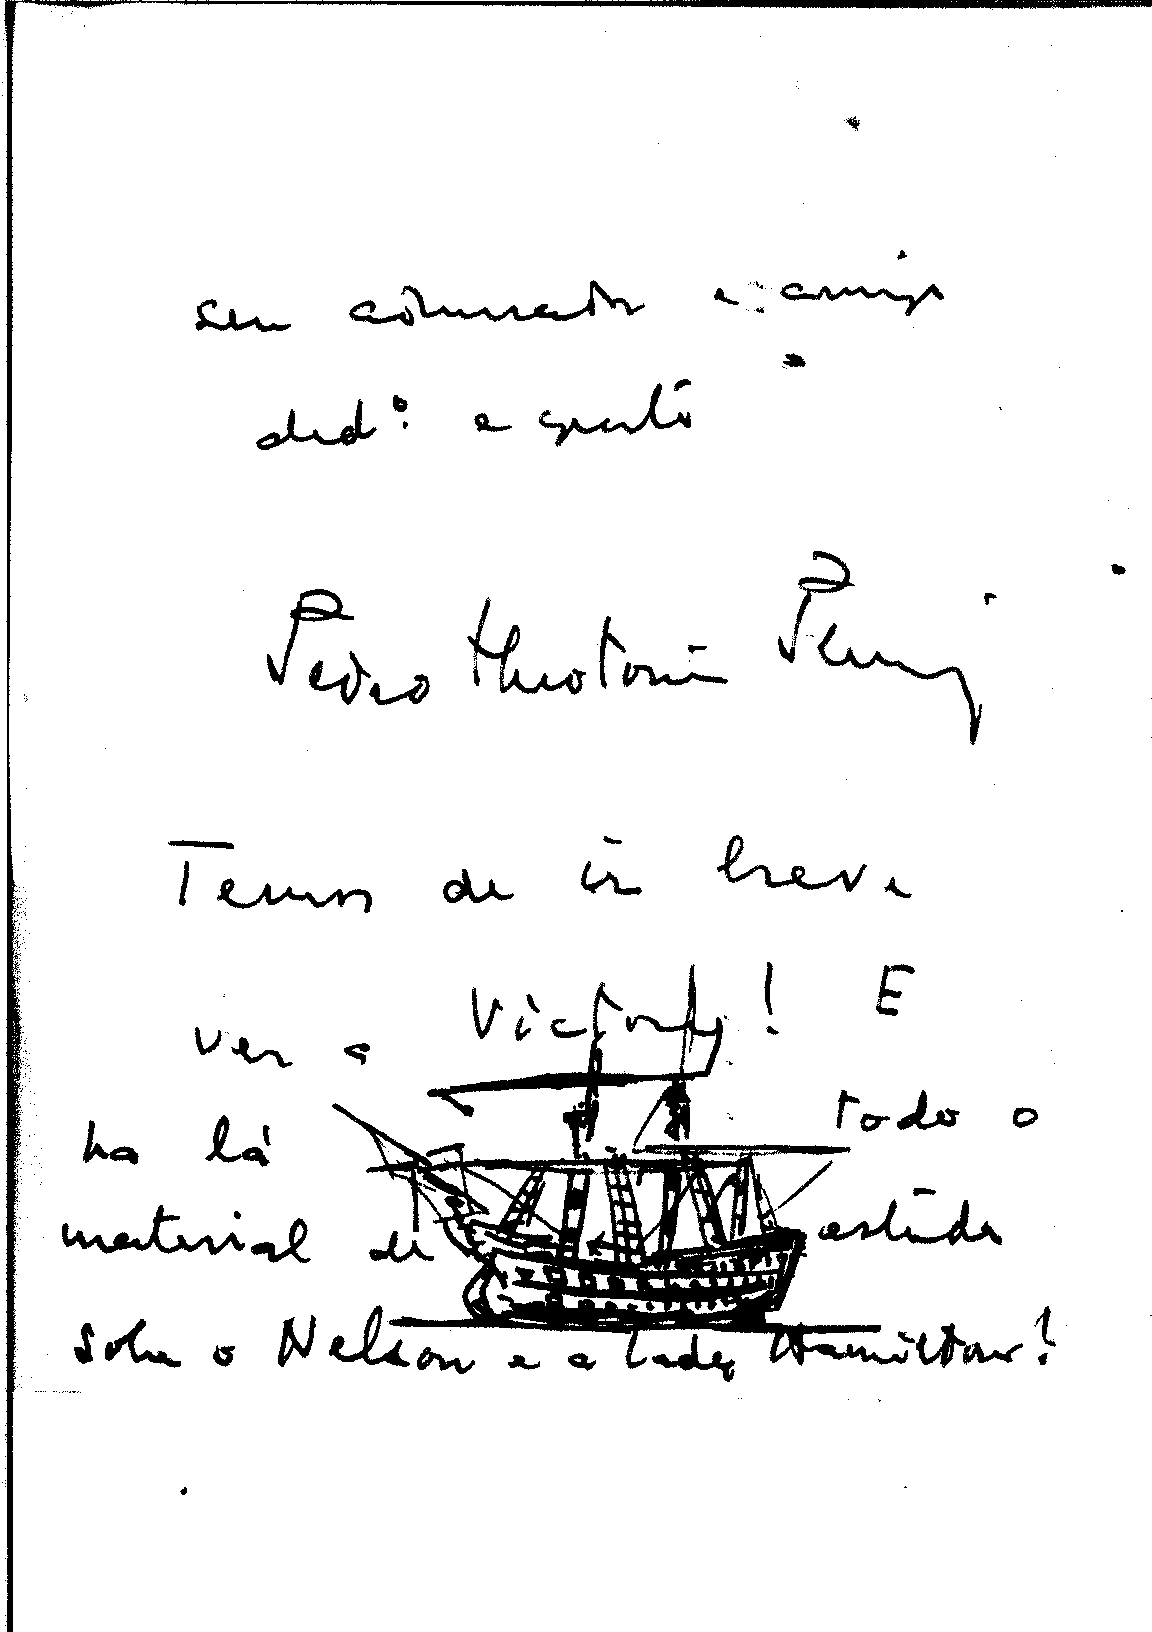 seu admirador e amigo
dedº e grato
Pedro Theotonio Pereira
Temos de ir breve
ver a Victory! E
ha lá todo o
material de estudo
sobre o Nelson e a Lady Hamilton!